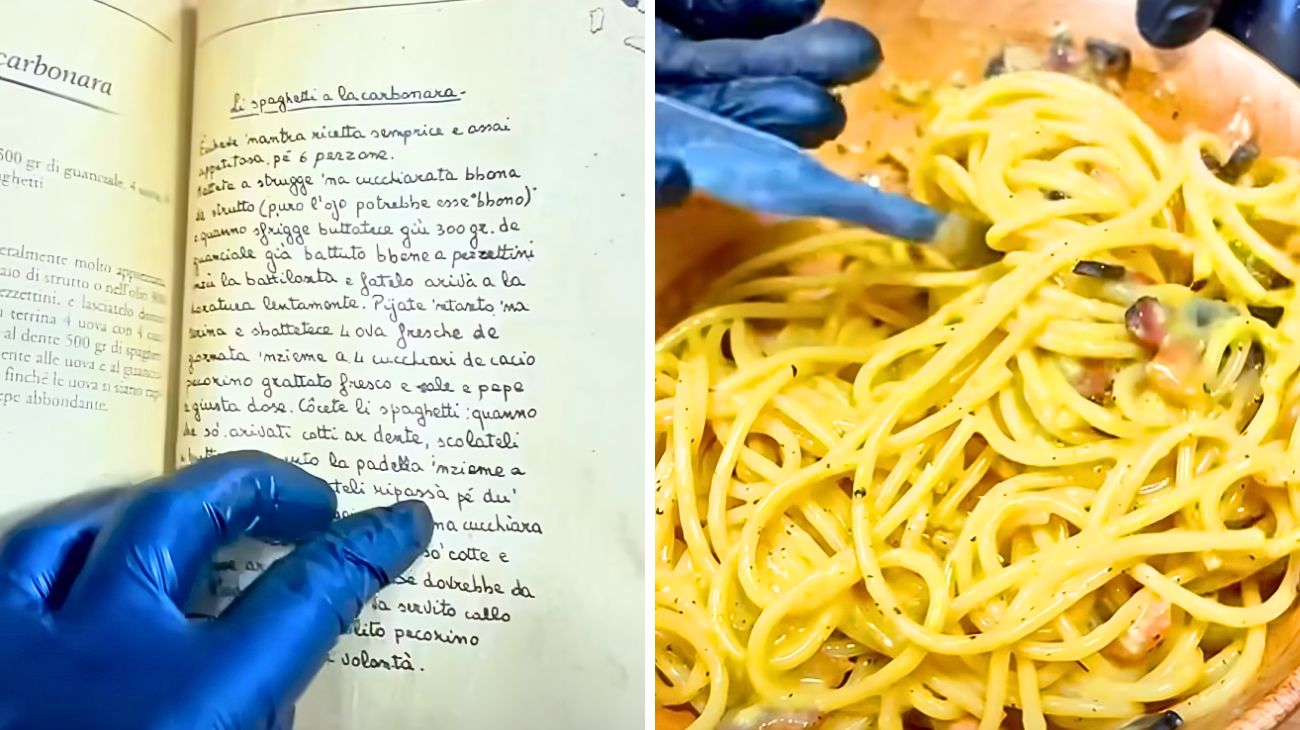 carbonara
500 gr di guanciale, 4
ghetti
eralmente molto
aio di strutto o nell'olio
ezzettini, e lasciatelo
terrina 4 uova con 4
al dente 500 gr di spaghetti
ente alle uova e al
finché le uova si siano
epe abbondante.
Li spaghetti a la carbonara -
'nantra ricetta semprice e assai
appetitosa, pé 6 perzone.
a strugge 'na cucchiarata bbona
de strutto (puro l'ojo potrebbe esse bbono)
e quanno sfrigge buttatece giù 300 gr. de
guanciale già battuto bbene a pezzettini
la battilonta e fatelo arivà a la
lentamente. Pijate 'ntanto 'na
e sbattetece 4 ova fresche de
giornata 'nzieme a 4 cucchiari de cacio
pecorino grattato fresco e sale e pepe
a giusta dose. Côcete li spaghetti: quanno
che só arivati cotti ar dente, scolateli
la padella 'nzieme a
teli ripassà pé du'
na cucchiara
só cotte e
dovrebbe da
servito callo
lito pecorino
volontà.